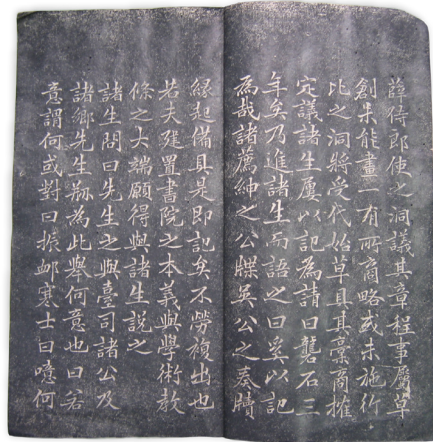 薛侍郎使之洞議其章程事屬草
創未能畫一有所商略或未施行
比之洞將受代始草具其稾商搉
定議諸生屢以記為請曰礱石三
年矣乃進諸生而語之曰奚以記
為哉諸薦紳之公牒吳公之奏牘
緣起備具是即記矣不勞複出也
若夫建置書院之本義與學術教
條之大端願得與諸生說之
諸生問曰先生之與臺司諸公及
諸鄉先生刱為此舉何意也曰若
意謂何或對曰振卹寒士曰噫何